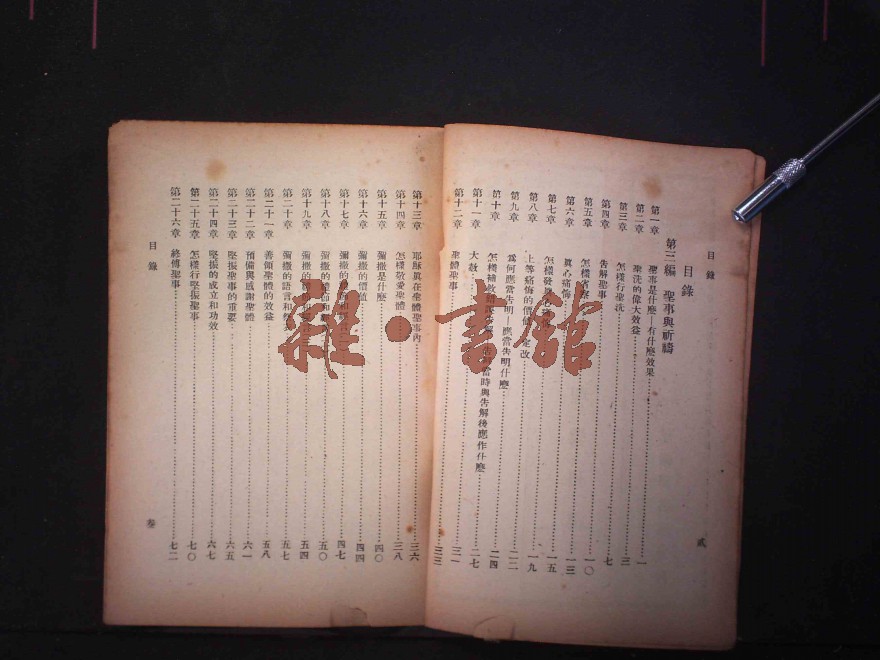 目錄
貳
目錄
第三編 聖事與祈禱
第一章 聖事是什麼—有什麼效果 一
第二章 聖洗的偉大效益 三
第三章 怎樣行聖洗 七
第四章 告解聖事 一〇
第五章 怎樣省察 一三
第六章 真心痛悔 一五
第七章 怎樣發 一九
第八章 上等痛悔的價值 定改 二二
第九章 為何應當告明—應當告明什麼 二四
第十章 怎樣補 當時與告解後應作什麼 二七
第十一章 大赦 三一
第十二章 聖體聖事 三三
第十三章 耶穌真在聖體聖事內 三六
第十四章 怎樣敬愛聖體 三八
第十五章 彌撒是什麼 四〇
第十六章 彌撒的價值 四四
第十七章 彌撒的 四七
第十八章 彌撒的禮節和 五〇
第十九章 彌撒的 五四
第二十章 彌撒的語言和 五七
第二十一章 善領聖體的效益 五八
第二十二章 預備與感謝聖體 六一
第二十三章 堅振聖事的重要 六五
第二十四章 堅振的成立和功效 六七
第二十五章 怎樣行堅振聖事 七〇
第二十六章 終傅聖事 七二
目錄
叁
雜·書館